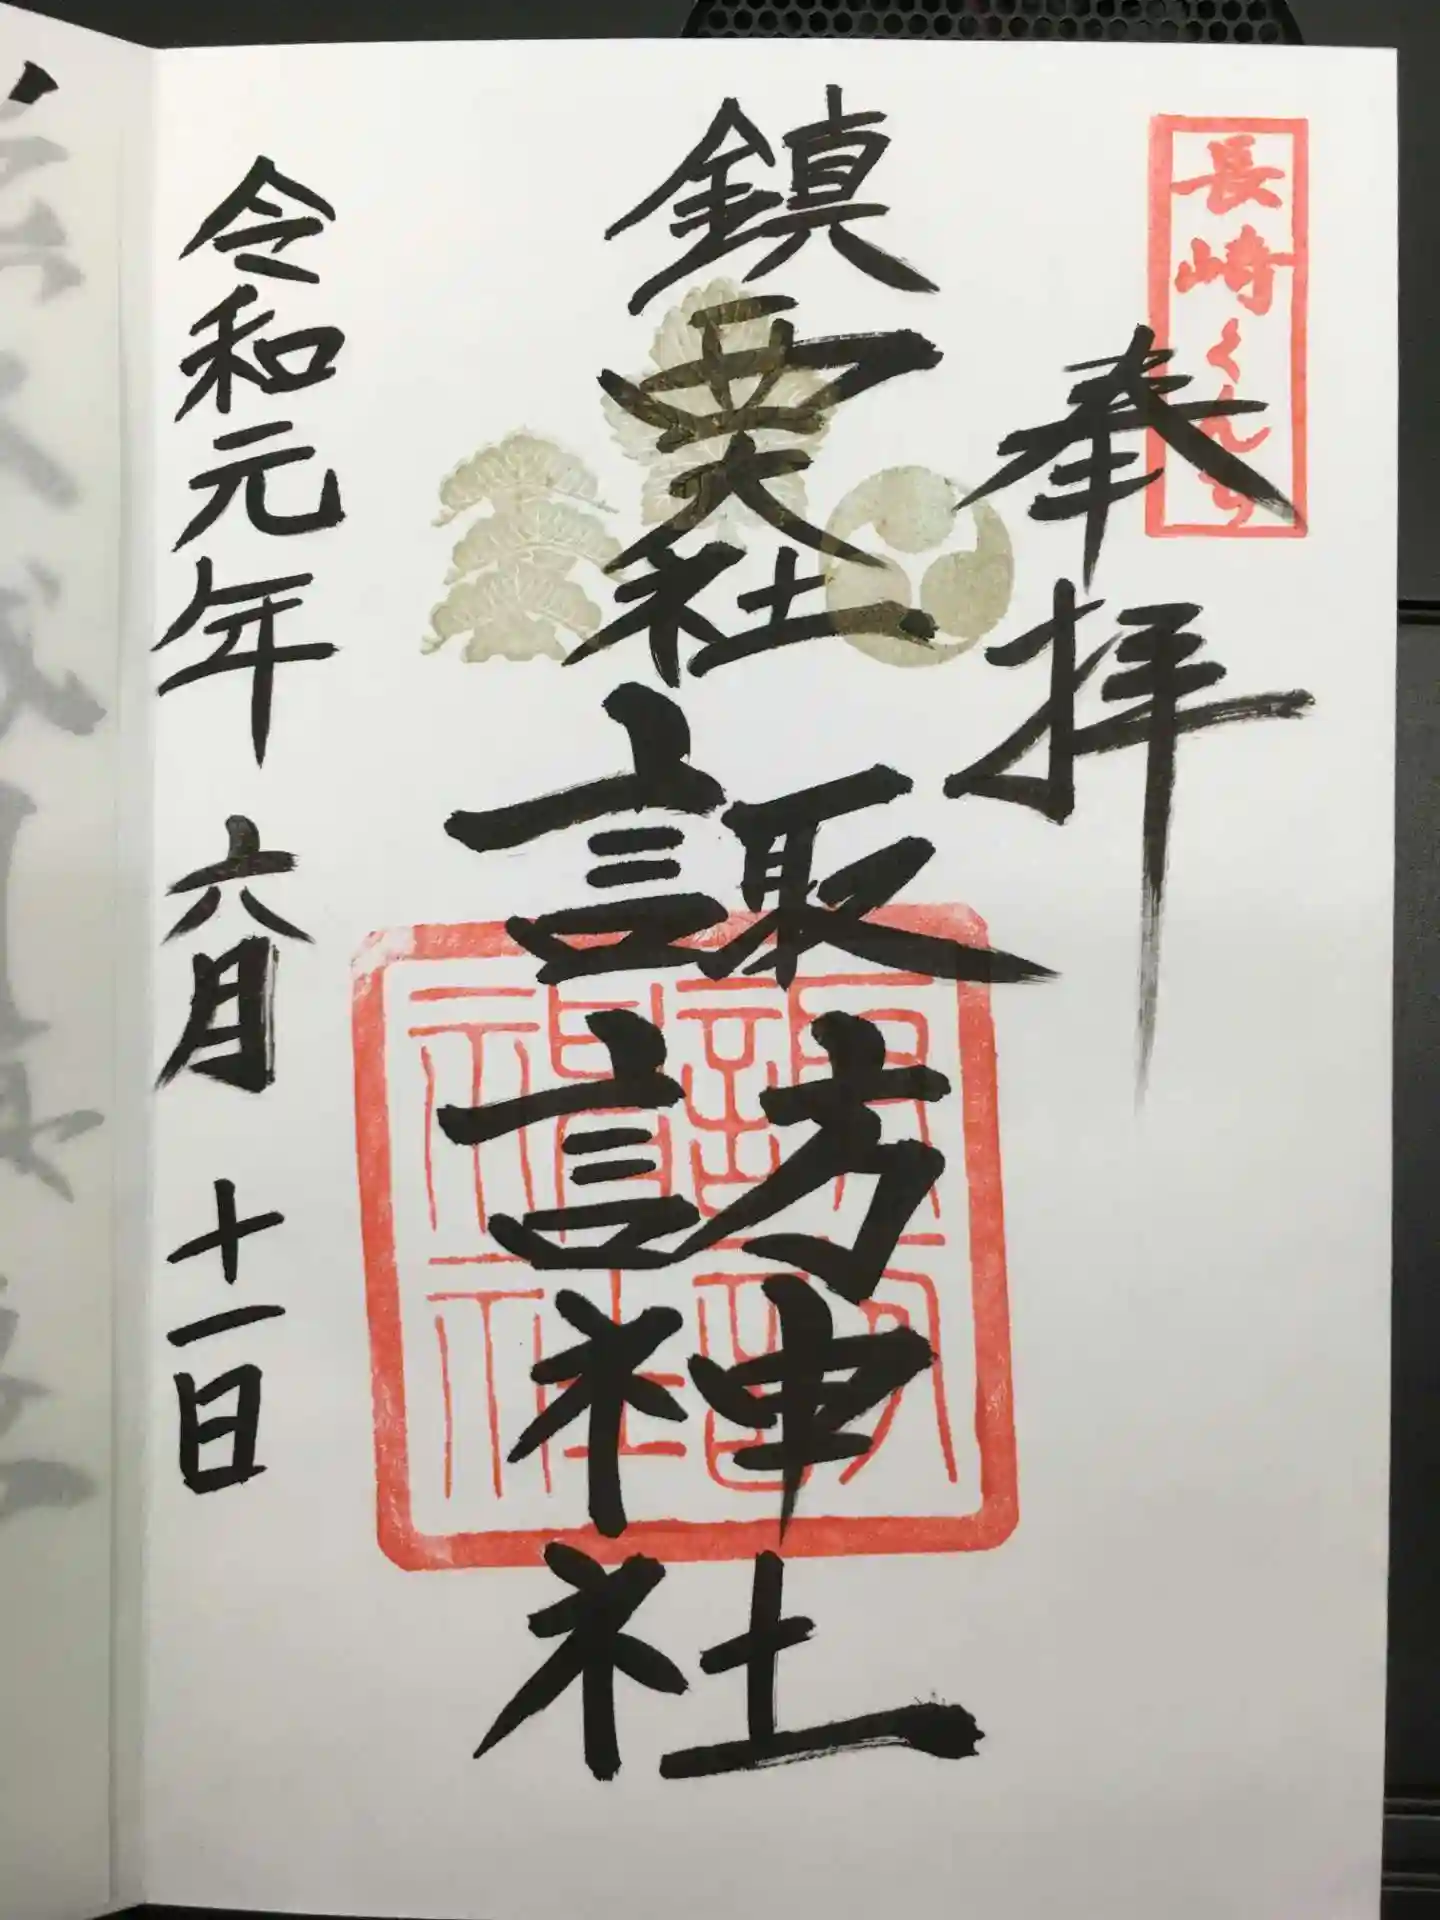 長崎くんち
奉拝
鎮西大社
諏訪神社
諏訪
神社
令和元年 六月 十一日